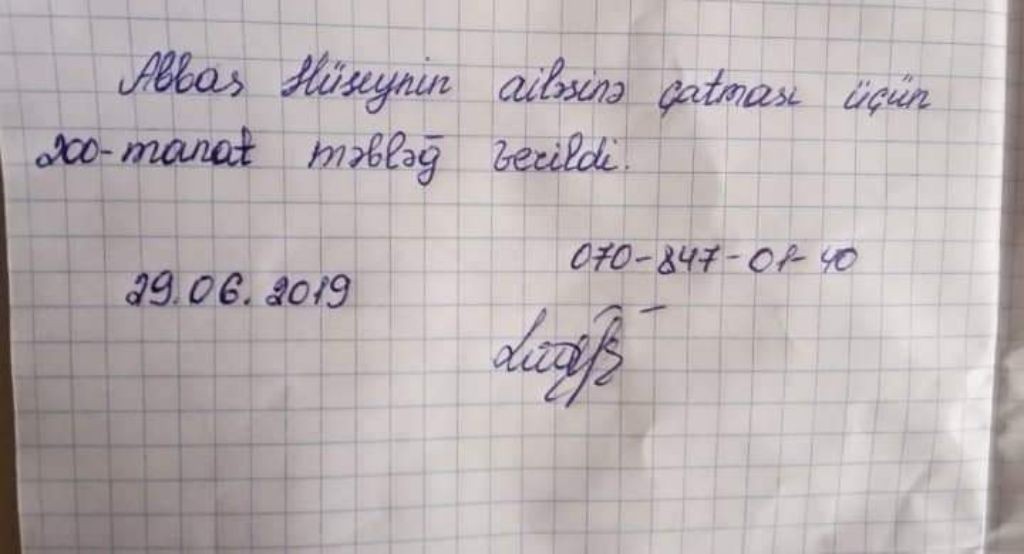 Abbas Hüseynin ailəsinə çatması üçün
200-manat məbləğ verildi.
070-847-01-40
29.06.2019